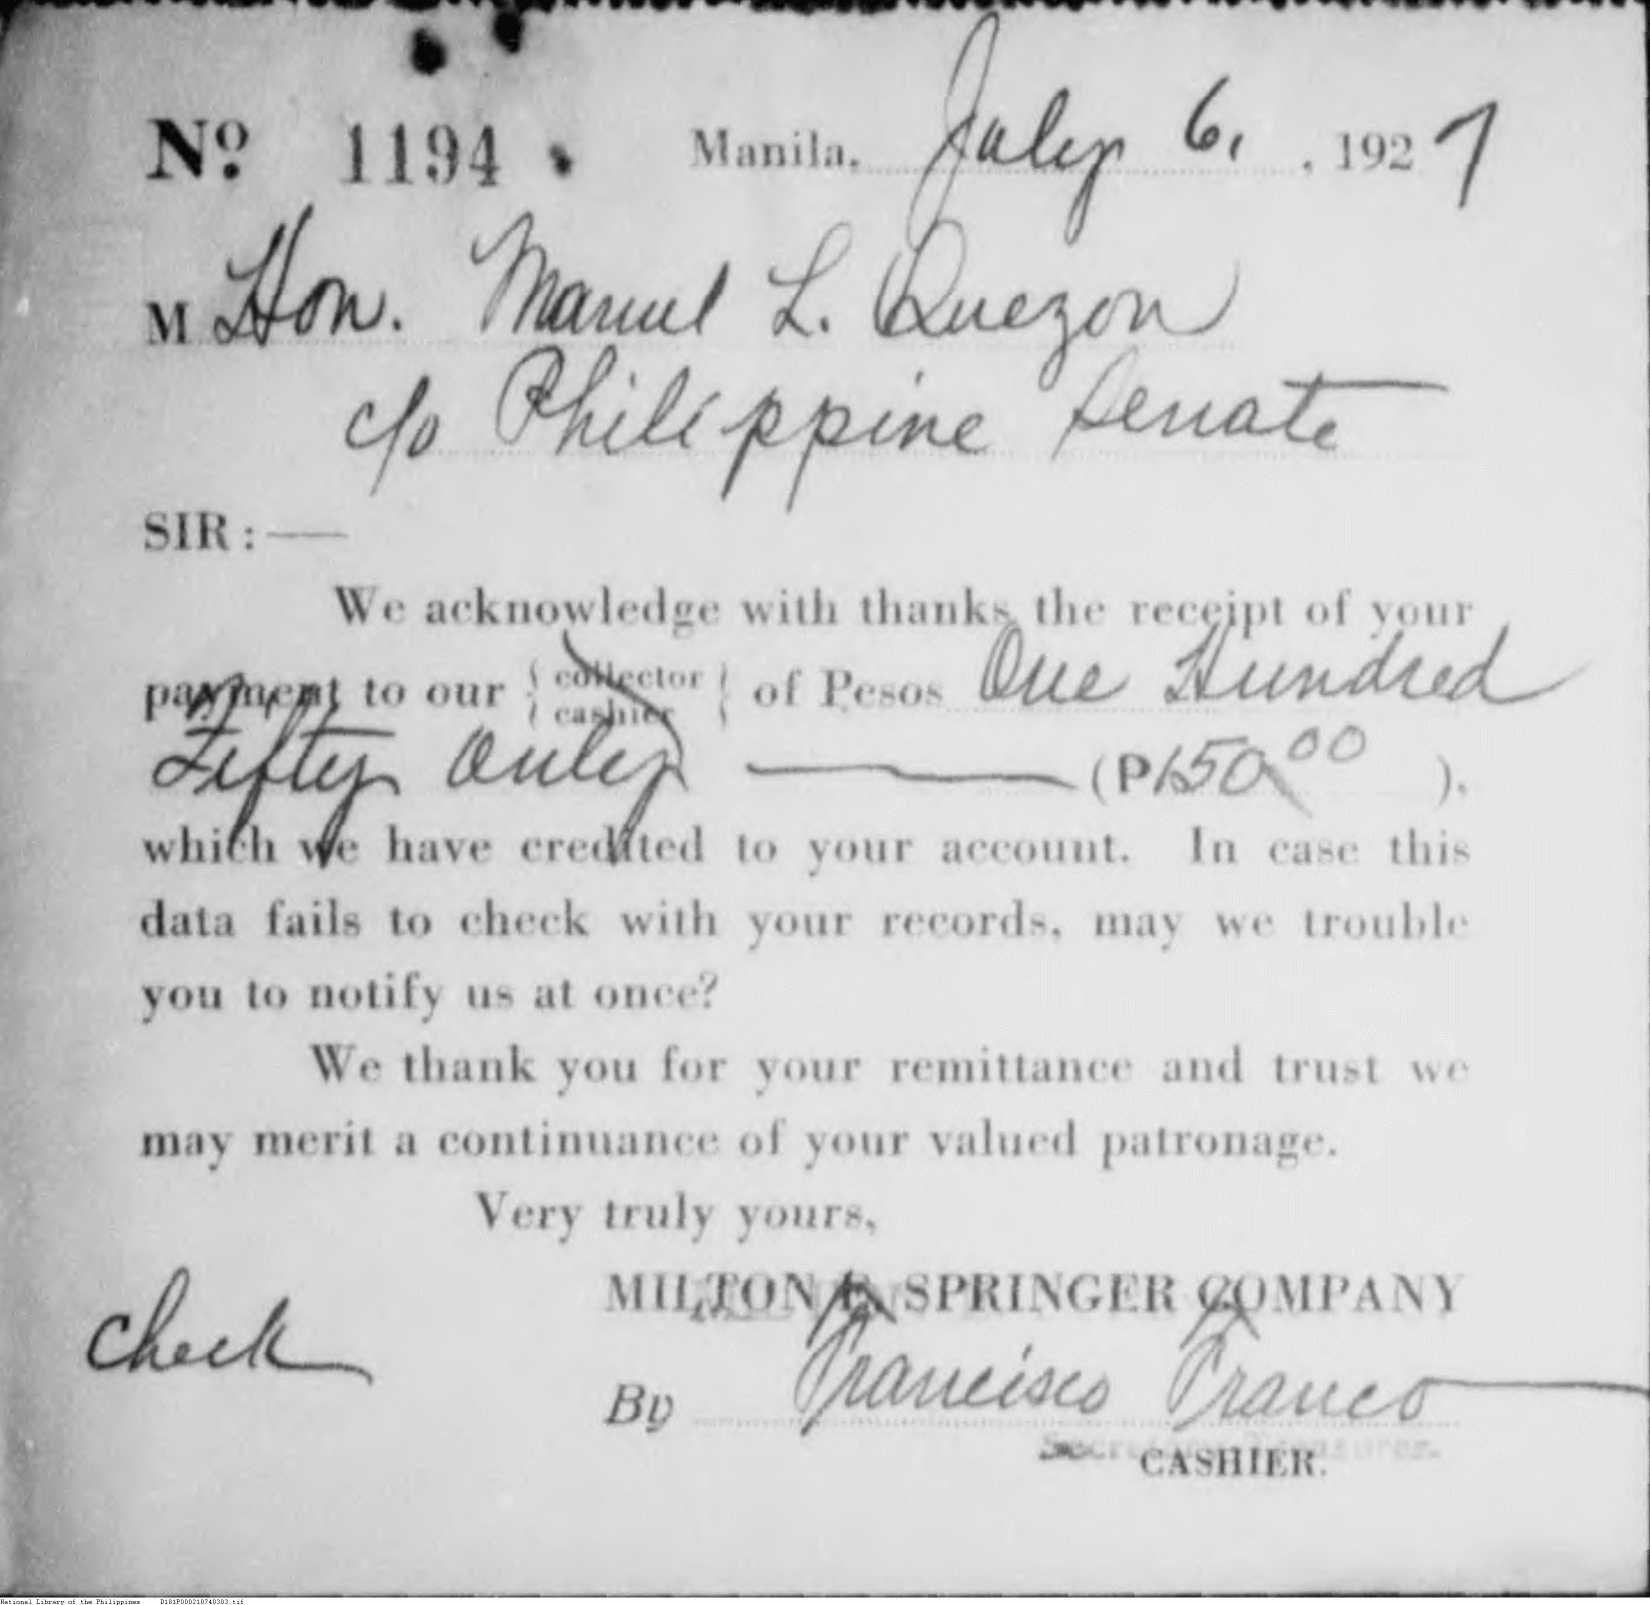 No. 1194 . Manila, July 6, , 1927
M Hon. Manuel L. Quezon
c/o Philippine Senate
SIR:—
We acknowledge with thanks the receipt of your
payment to our { collector
cashier } of Pesos One Hundred
Fifty Only ——— (P150.00 ),
which we have credited to your account. In case this
data fails to check with your records, may we trouble
you to notify us at once?
We thank you for your remittance and trust we
may merit a continuance of your valued patronage.
Very truly yours,
MILTON E. SPRINGER COMPANY
check
By Francisco Franco
Secretary-Treasurer.
CASHIER.
National Library of the Philippines D1R1P000210740303.tif